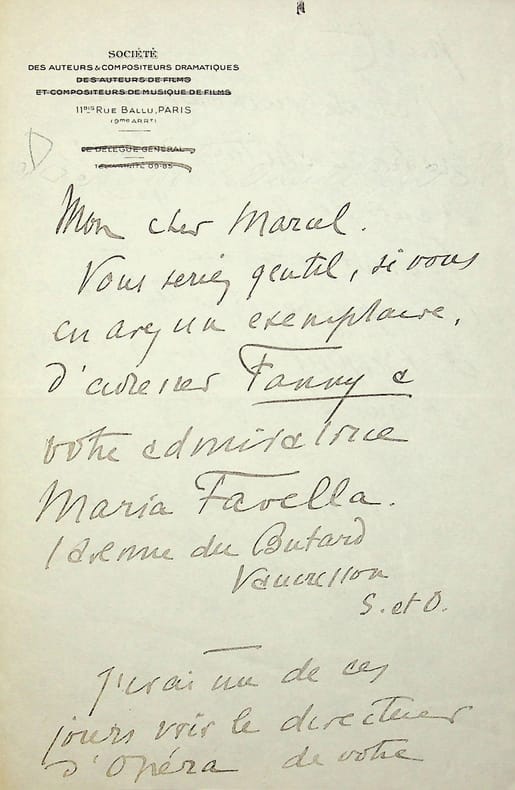 SOCIÉTÉ
DES AUTEURS & COMPOSITEURS DRAMATIQUES
DES AUTEURS DE FILMS
ET COMPOSITEURS DE MUSIQUE DE FILMS
11BIS RUE BALLU, PARIS
(9ME ARRT)
LE DÉLÉGUÉ GÉNÉRAL
Mon cher Marcel.
Vous seriez gentil, si vous
en avez un exemplaire,
d'adresser Fanny à
votre admiratrice
Maria Favella.
1 avenue du Butard
Vaucresson
S. et O.
J'irai un de ces
jours voir le directeur
d'Opéra de votre